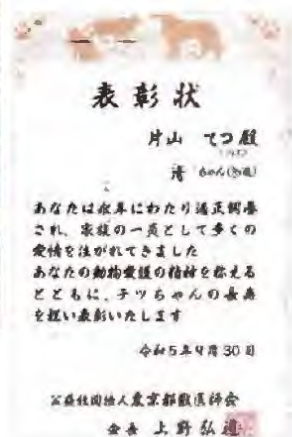 表彰状
片山 てつ 殿
清
あなたは永年にわたり適正飼養
され、家族の一員として多くの
愛情を注がれてきました
あなたの動物愛護の精神を称える
とともに、テツちゃんの長寿
を祝い表彰いたします
令和5年9月30日
公益社団法人東京都獣医師会
会長 上野弘道